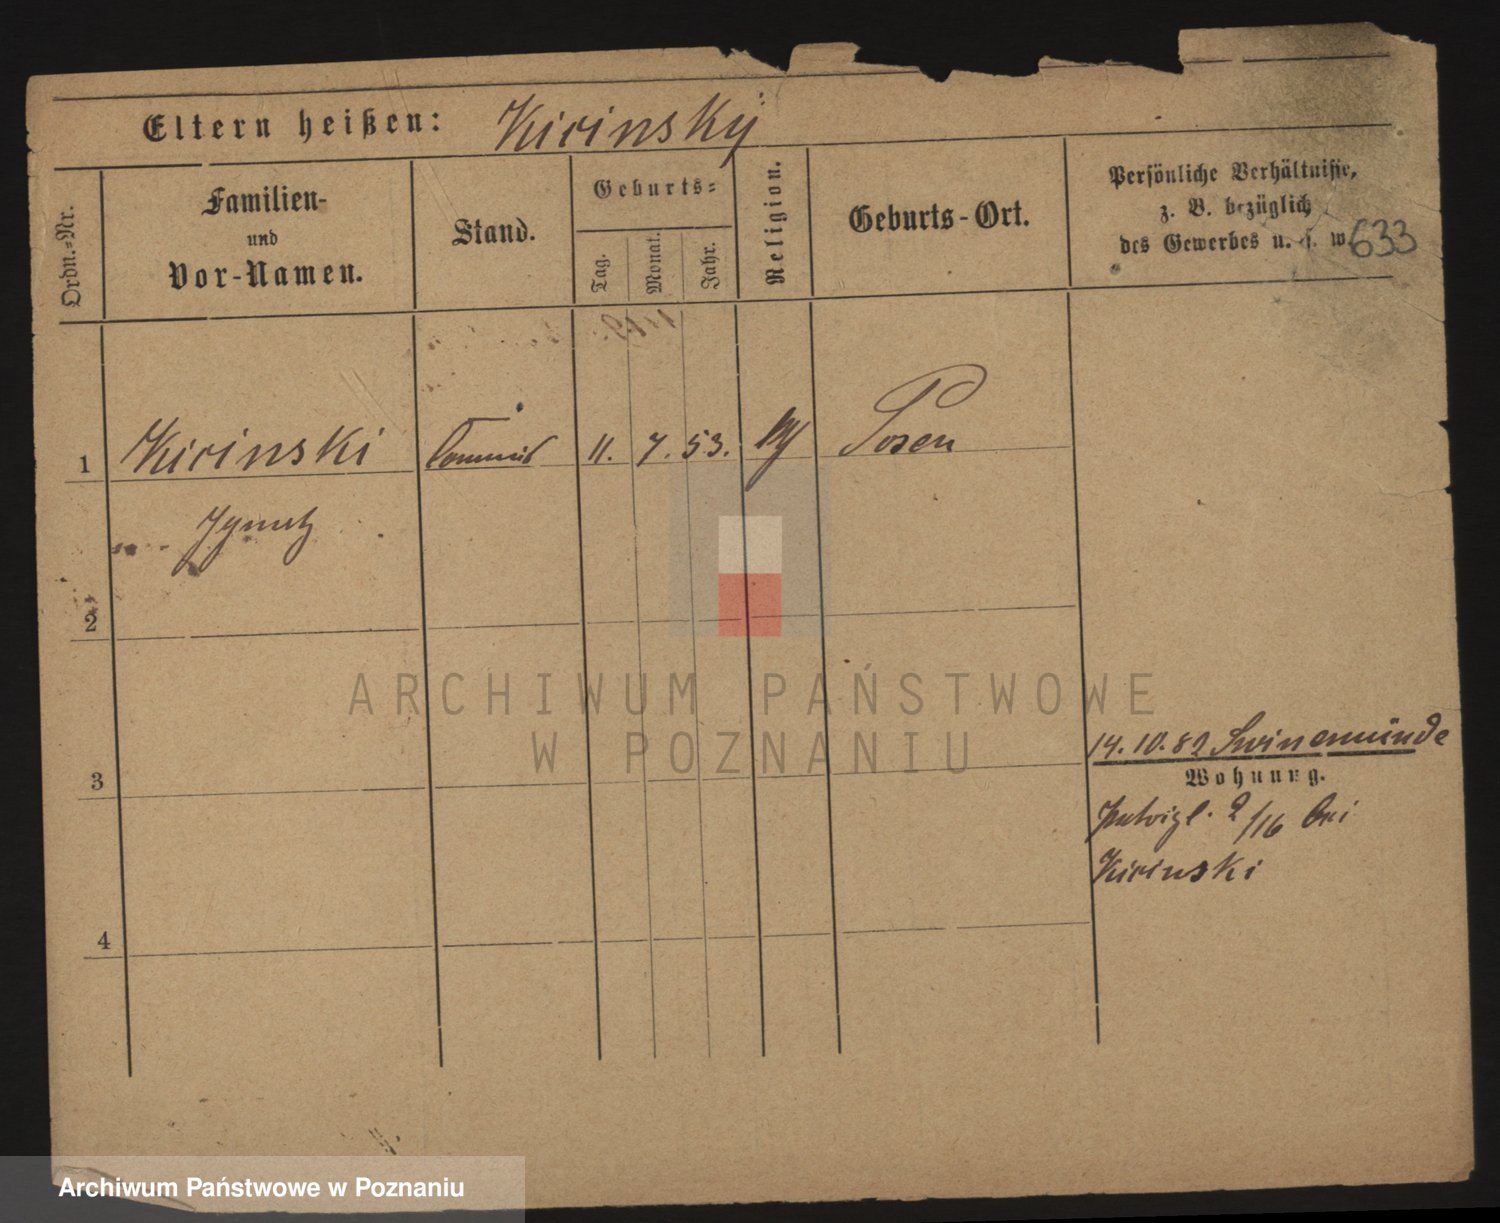 Eltern heißen: Kirinsky
Ordn.-Nr.
Familien-
und
Vor-Namen.
Stand.
Geburts-
Tag.
Monat.
Jahr.
Religion.
Geburts-Ort.
Persönliche Verhältnisse,
z. B. bezüglich
des Gewerbes u. s. w.
633
1 Kirinski Commis 11. 7. 53. Posen
Ignatz
2
3
14. 10. 82 Swinemünde
Wohnung.
2/16 bei
Kirinski
4
ARCHIWUM PAŃSTWOWE
W POZNANIU
Archiwum Państwowe w Poznaniu